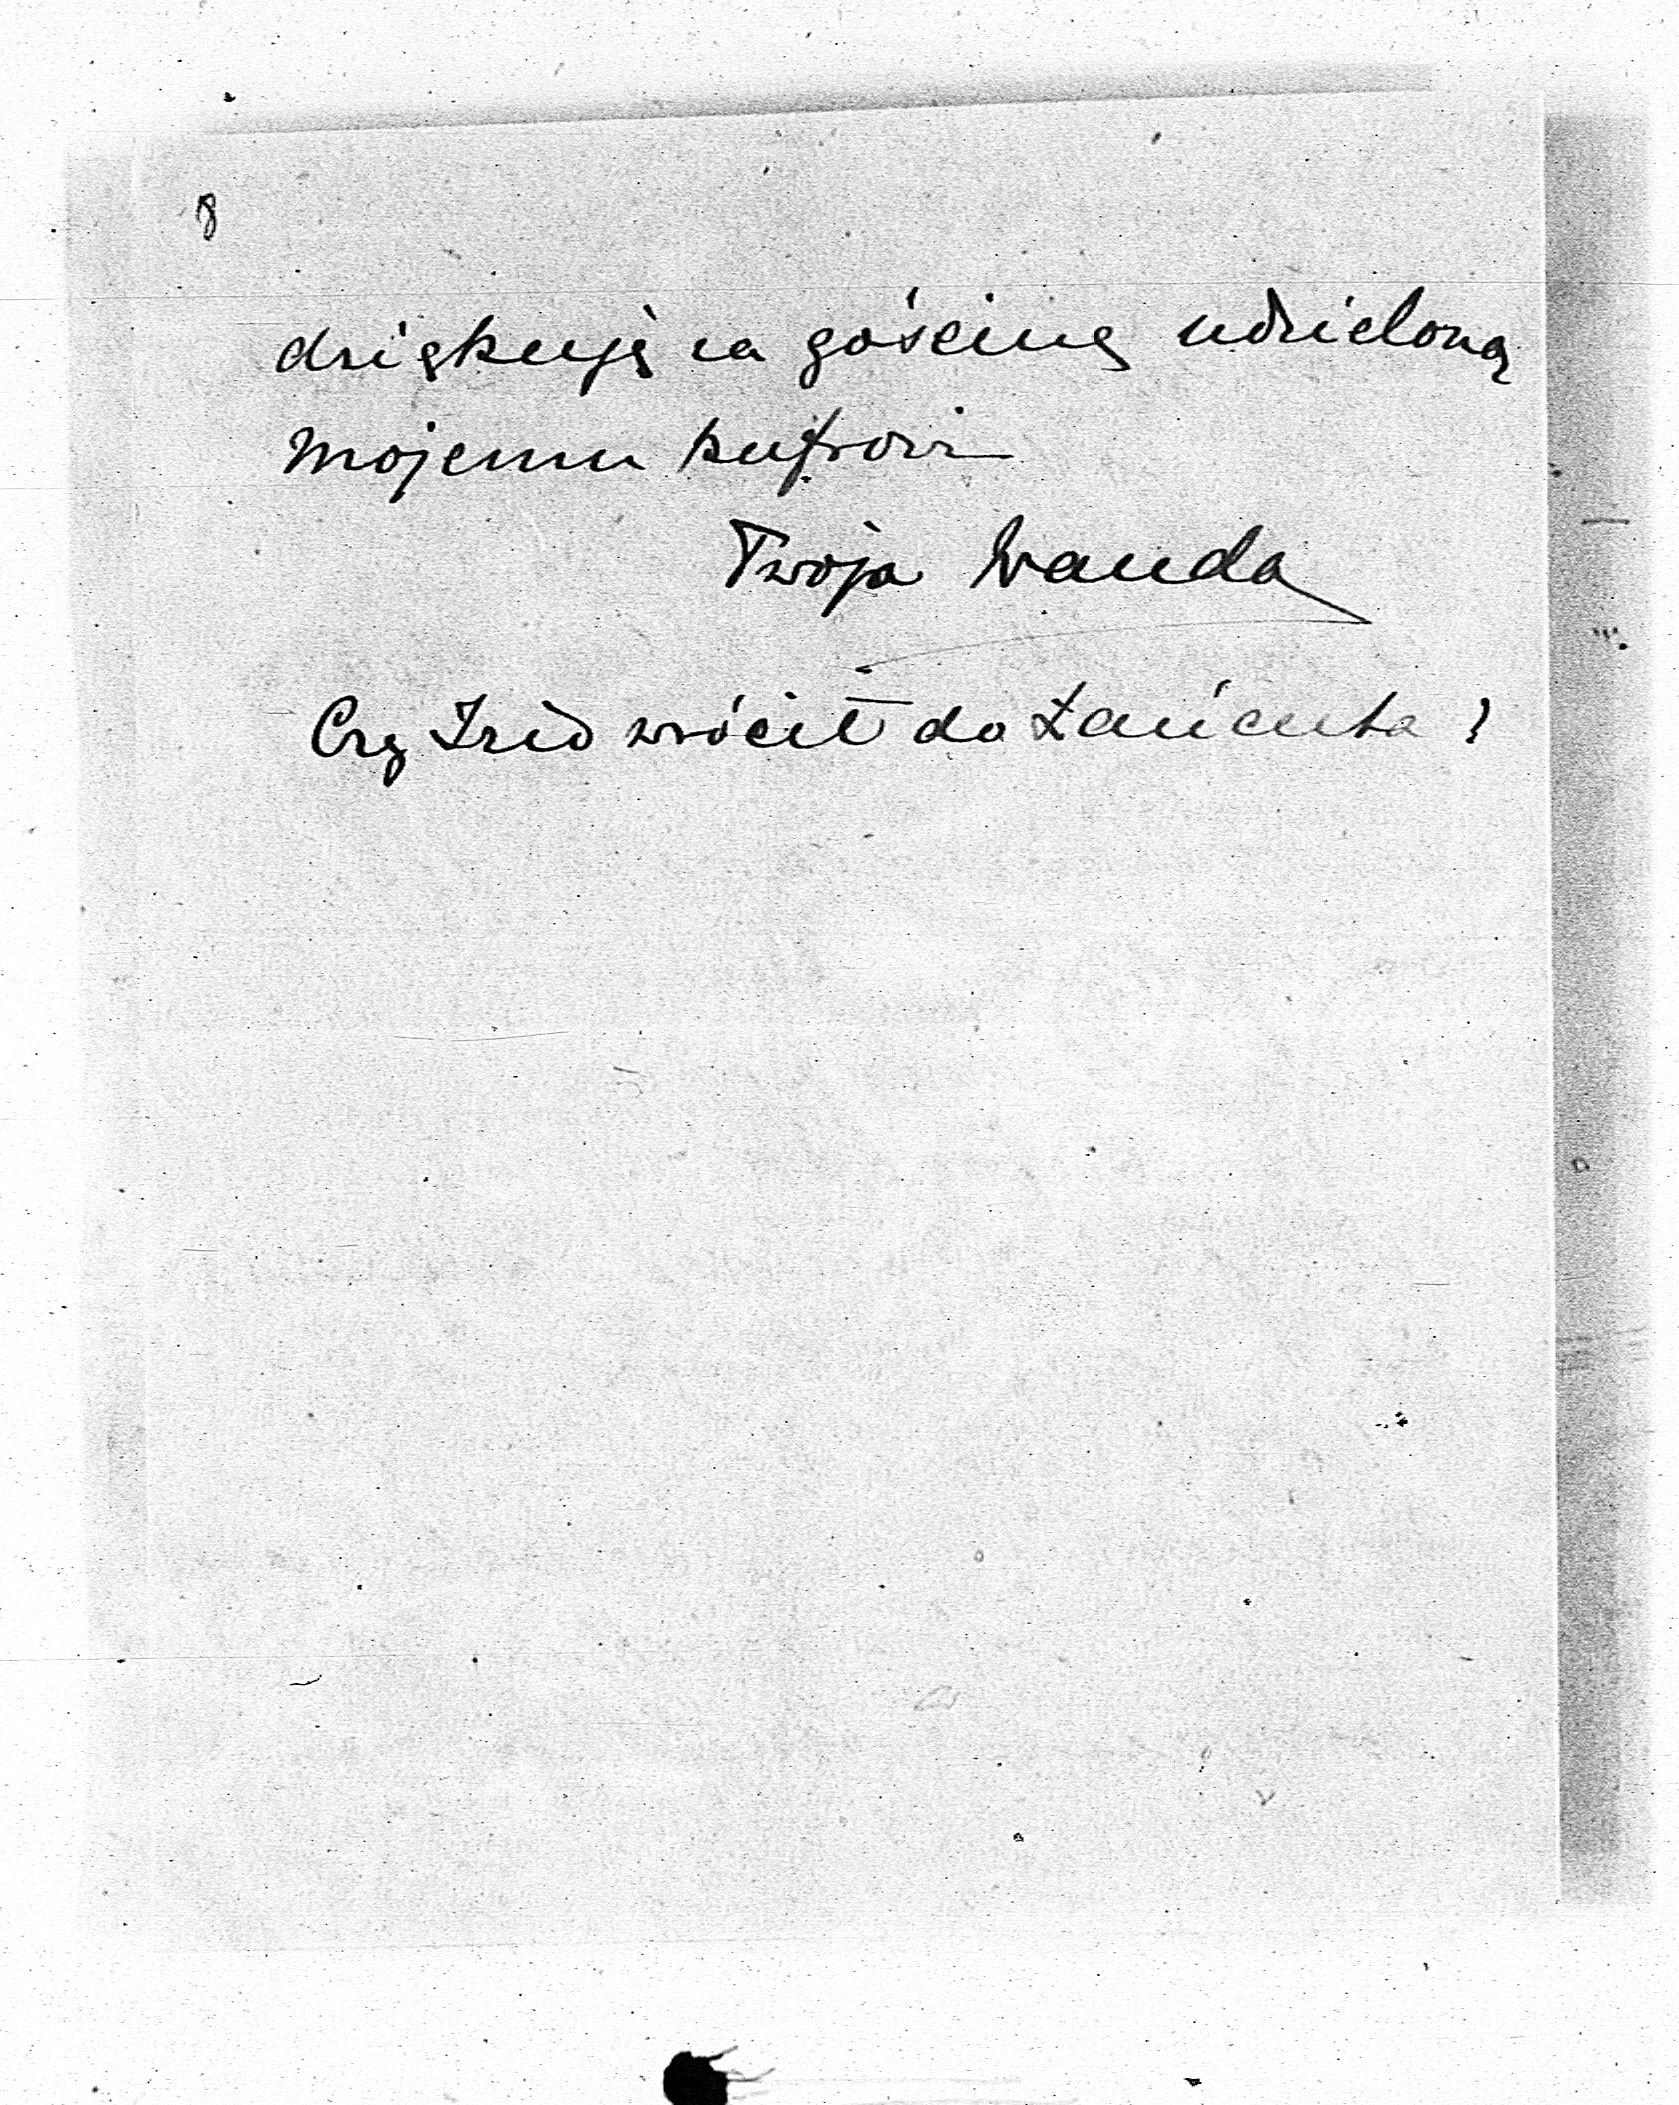 8
dziękuję za gościnę udzieloną
mojemu kufrowi
Twoja Wanda
Czy Izio wrócił do Łańcuta?